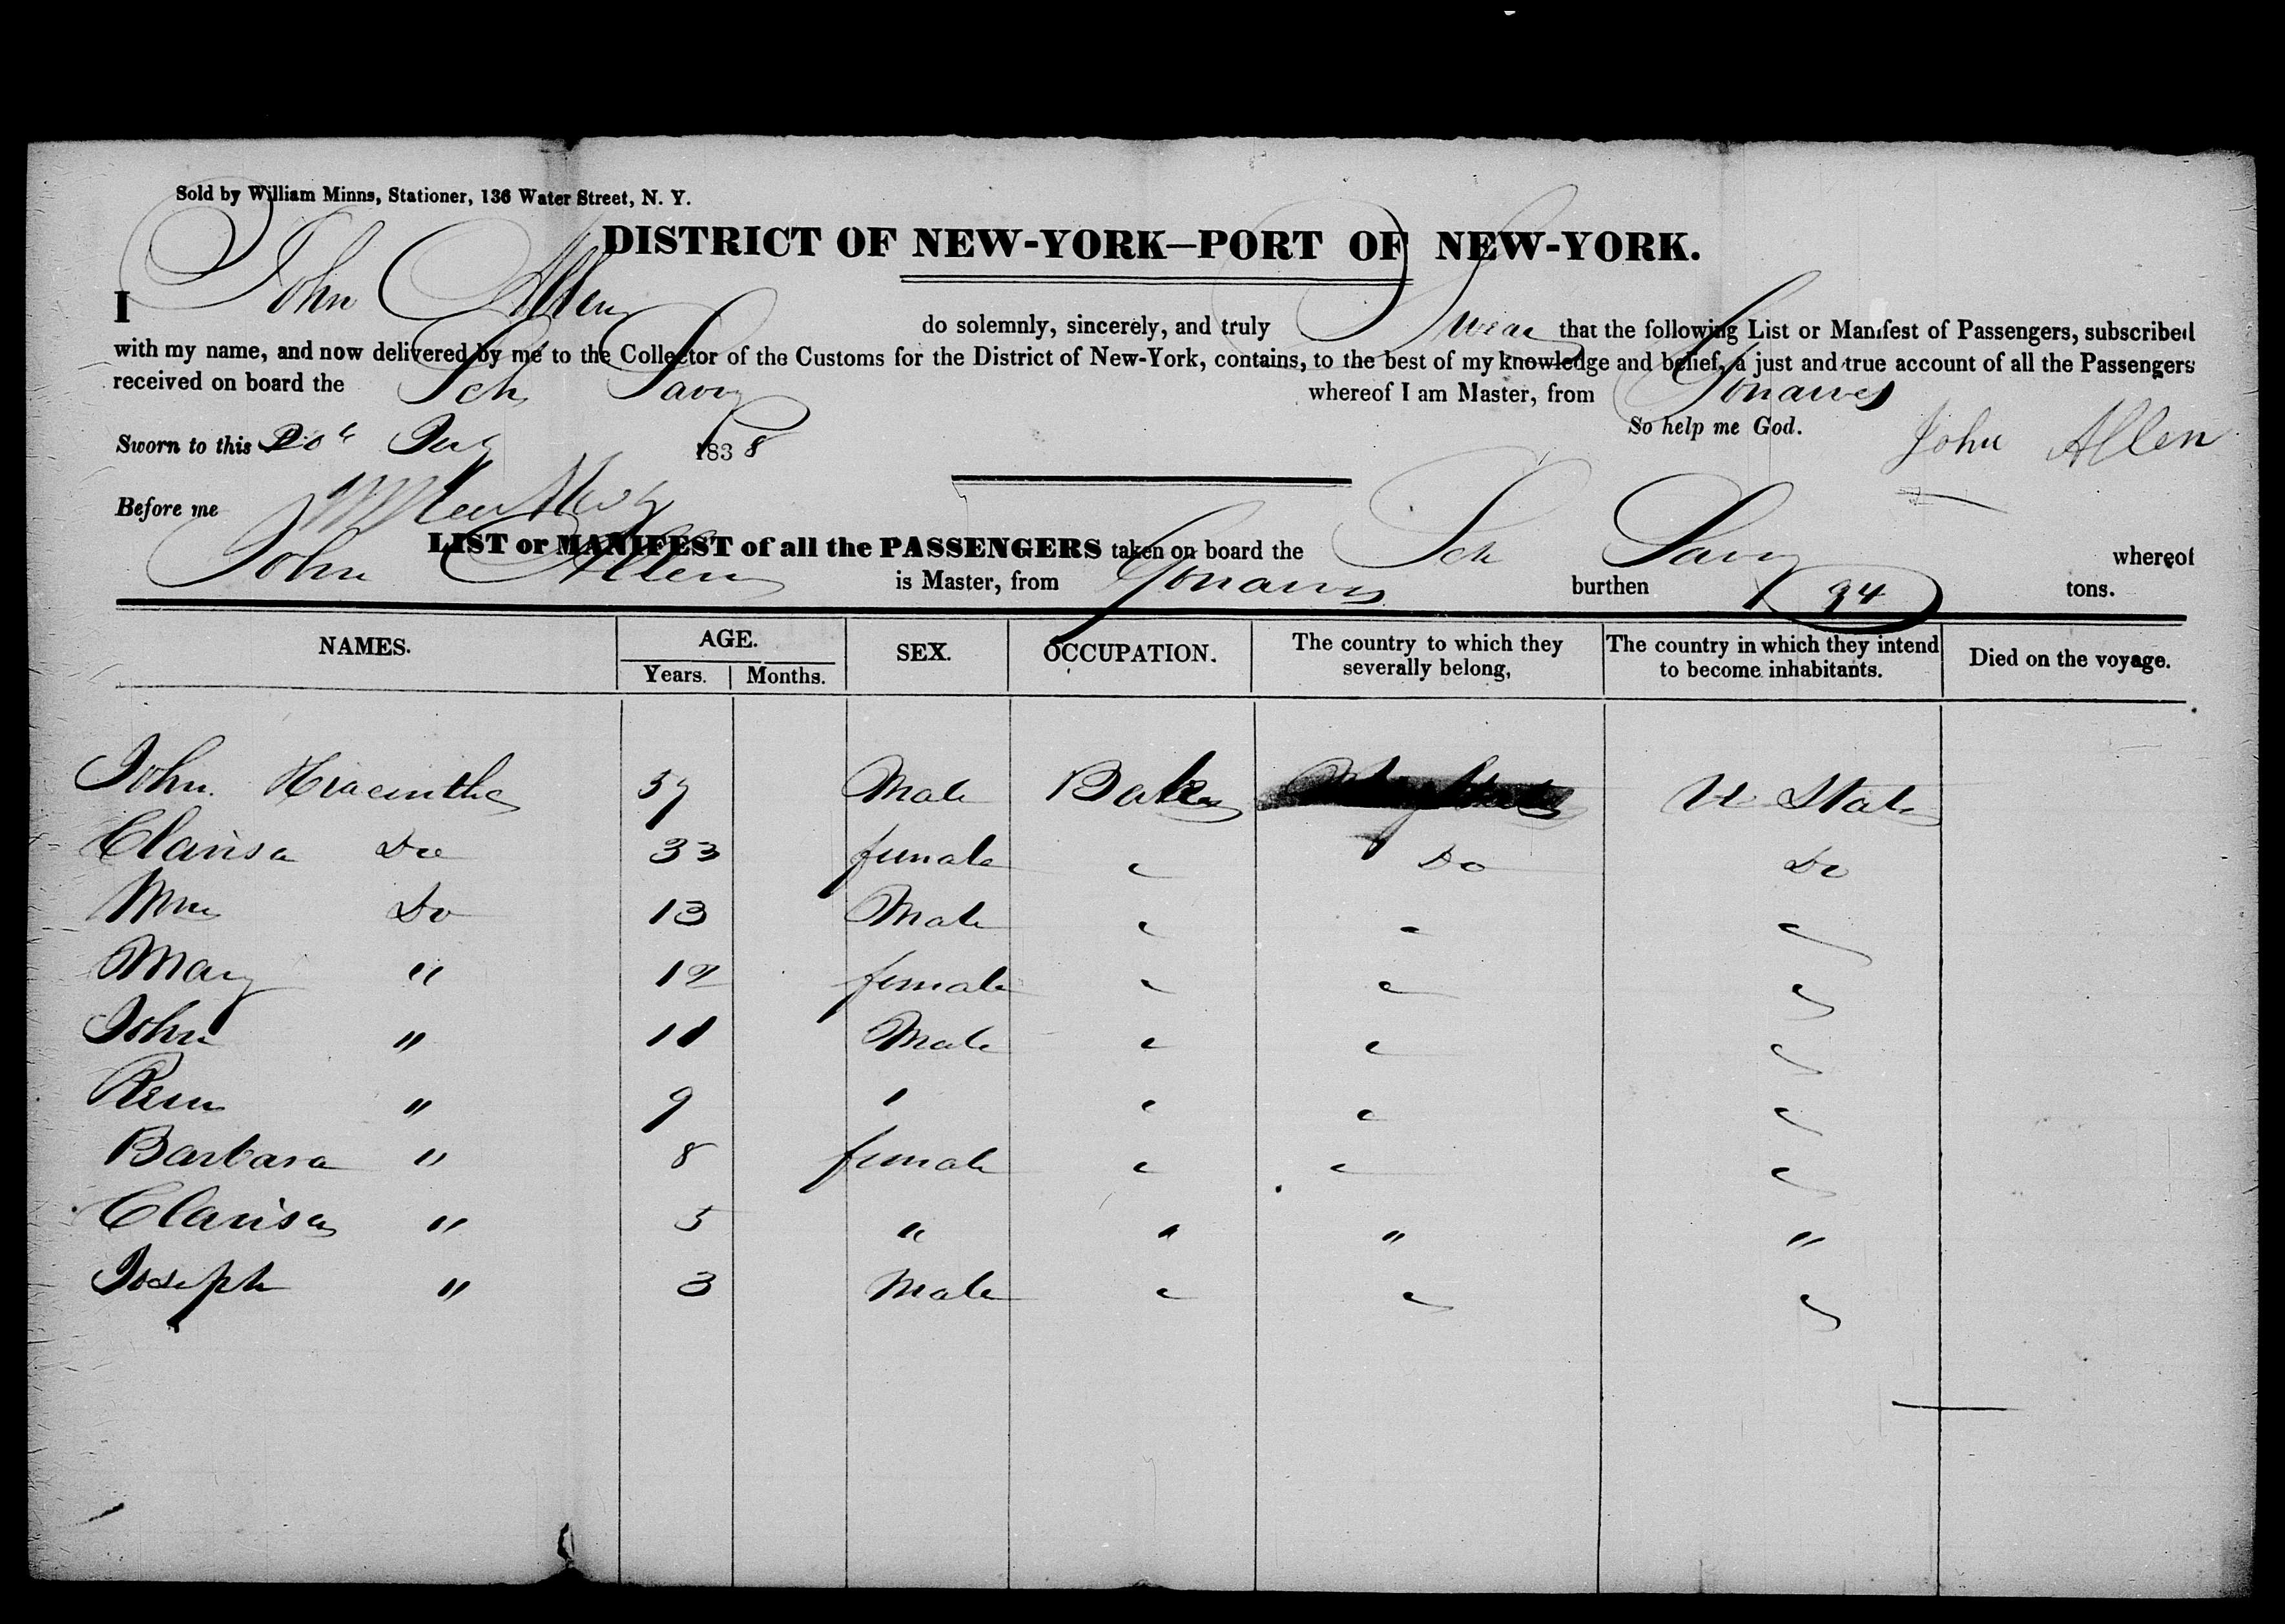 Sold by William Minns, Stationer, 136 Water Street, N. Y.
DISTRICT OF NEW-YORK—PORT OF NEW-YORK.
I John Allen do solemnly, sincerely, and truly Swear that the following List or Manifest of Passengers, subscribed
with my name, and now delivered by me to the Collector of the Customs for the District of New-York, contains, to the best of my knowledge and belief, a just and true account of all the Passengers
received on board the Sch Savy whereof I am Master, from Gonaives
So help me God.
Sworn to this 20th 1838 John Allen
Before me
LIST or MANIFEST of all the PASSENGERS taken on board the Sch Savy whereof
John Allen is Master, from Gonaives burthen 94 tons.
NAMES. AGE. SEX. OCCUPATION. The country to which they severally belong, The country in which they intend to become inhabitants. Died on the voyage.
Years. Months.
John Hiacinthe 57 Male Baker U States
Clarisa Do 33 female " Do Do
Wm Do 13 Male " " "
Mary " 12 female " " "
John " 11 Male " " "
" 9 " " " "
Barbara " 8 female " " "
Clarisa " 5 " " " "
Joseph " 3 Male " " "